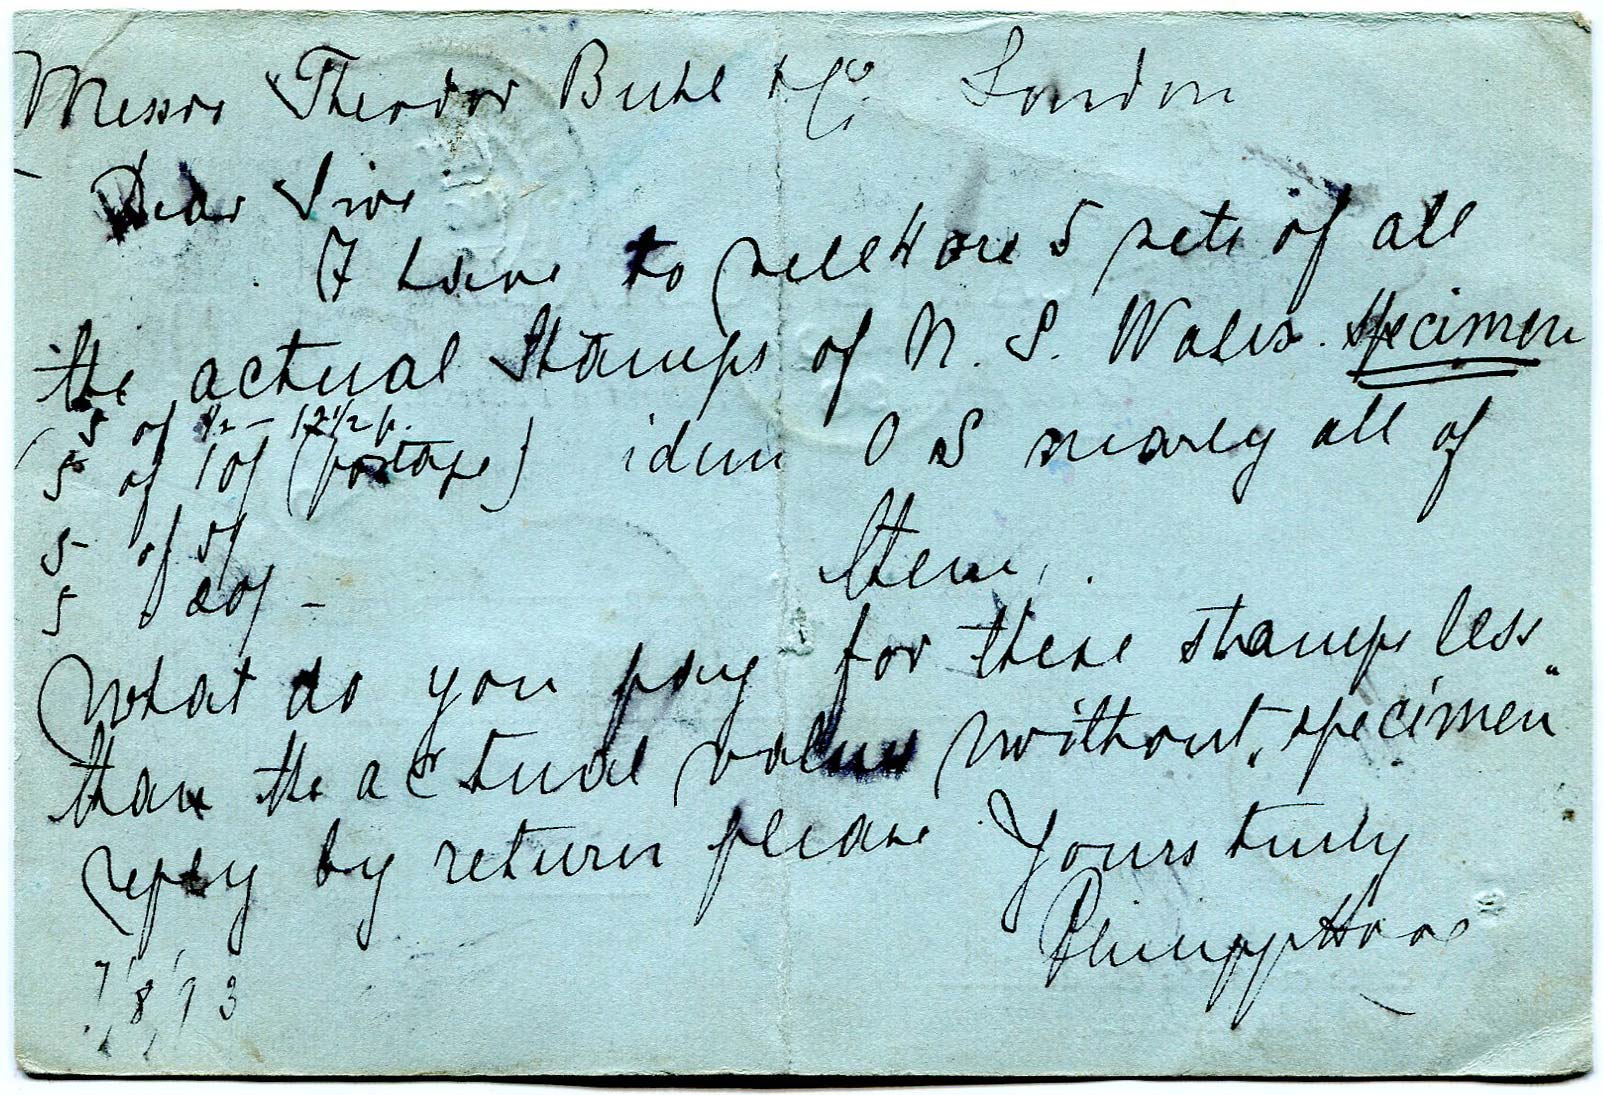 Messrs Theodor Buhl & Co. London
Dear Sirs
I have to sell 4 are 5 sets of all
the actual Stamps of N. S. Wales. Specimen
5 of 1/2 - 12 1/2 p.
5 of 10/ (postage) idem O S nearly all of
5 of 5/
them.
5 of 20/ -
What do you pay for these stamps less
than the actual value without "specimen"
reply by return please Yours truly
Philipp Haas
7/8 93